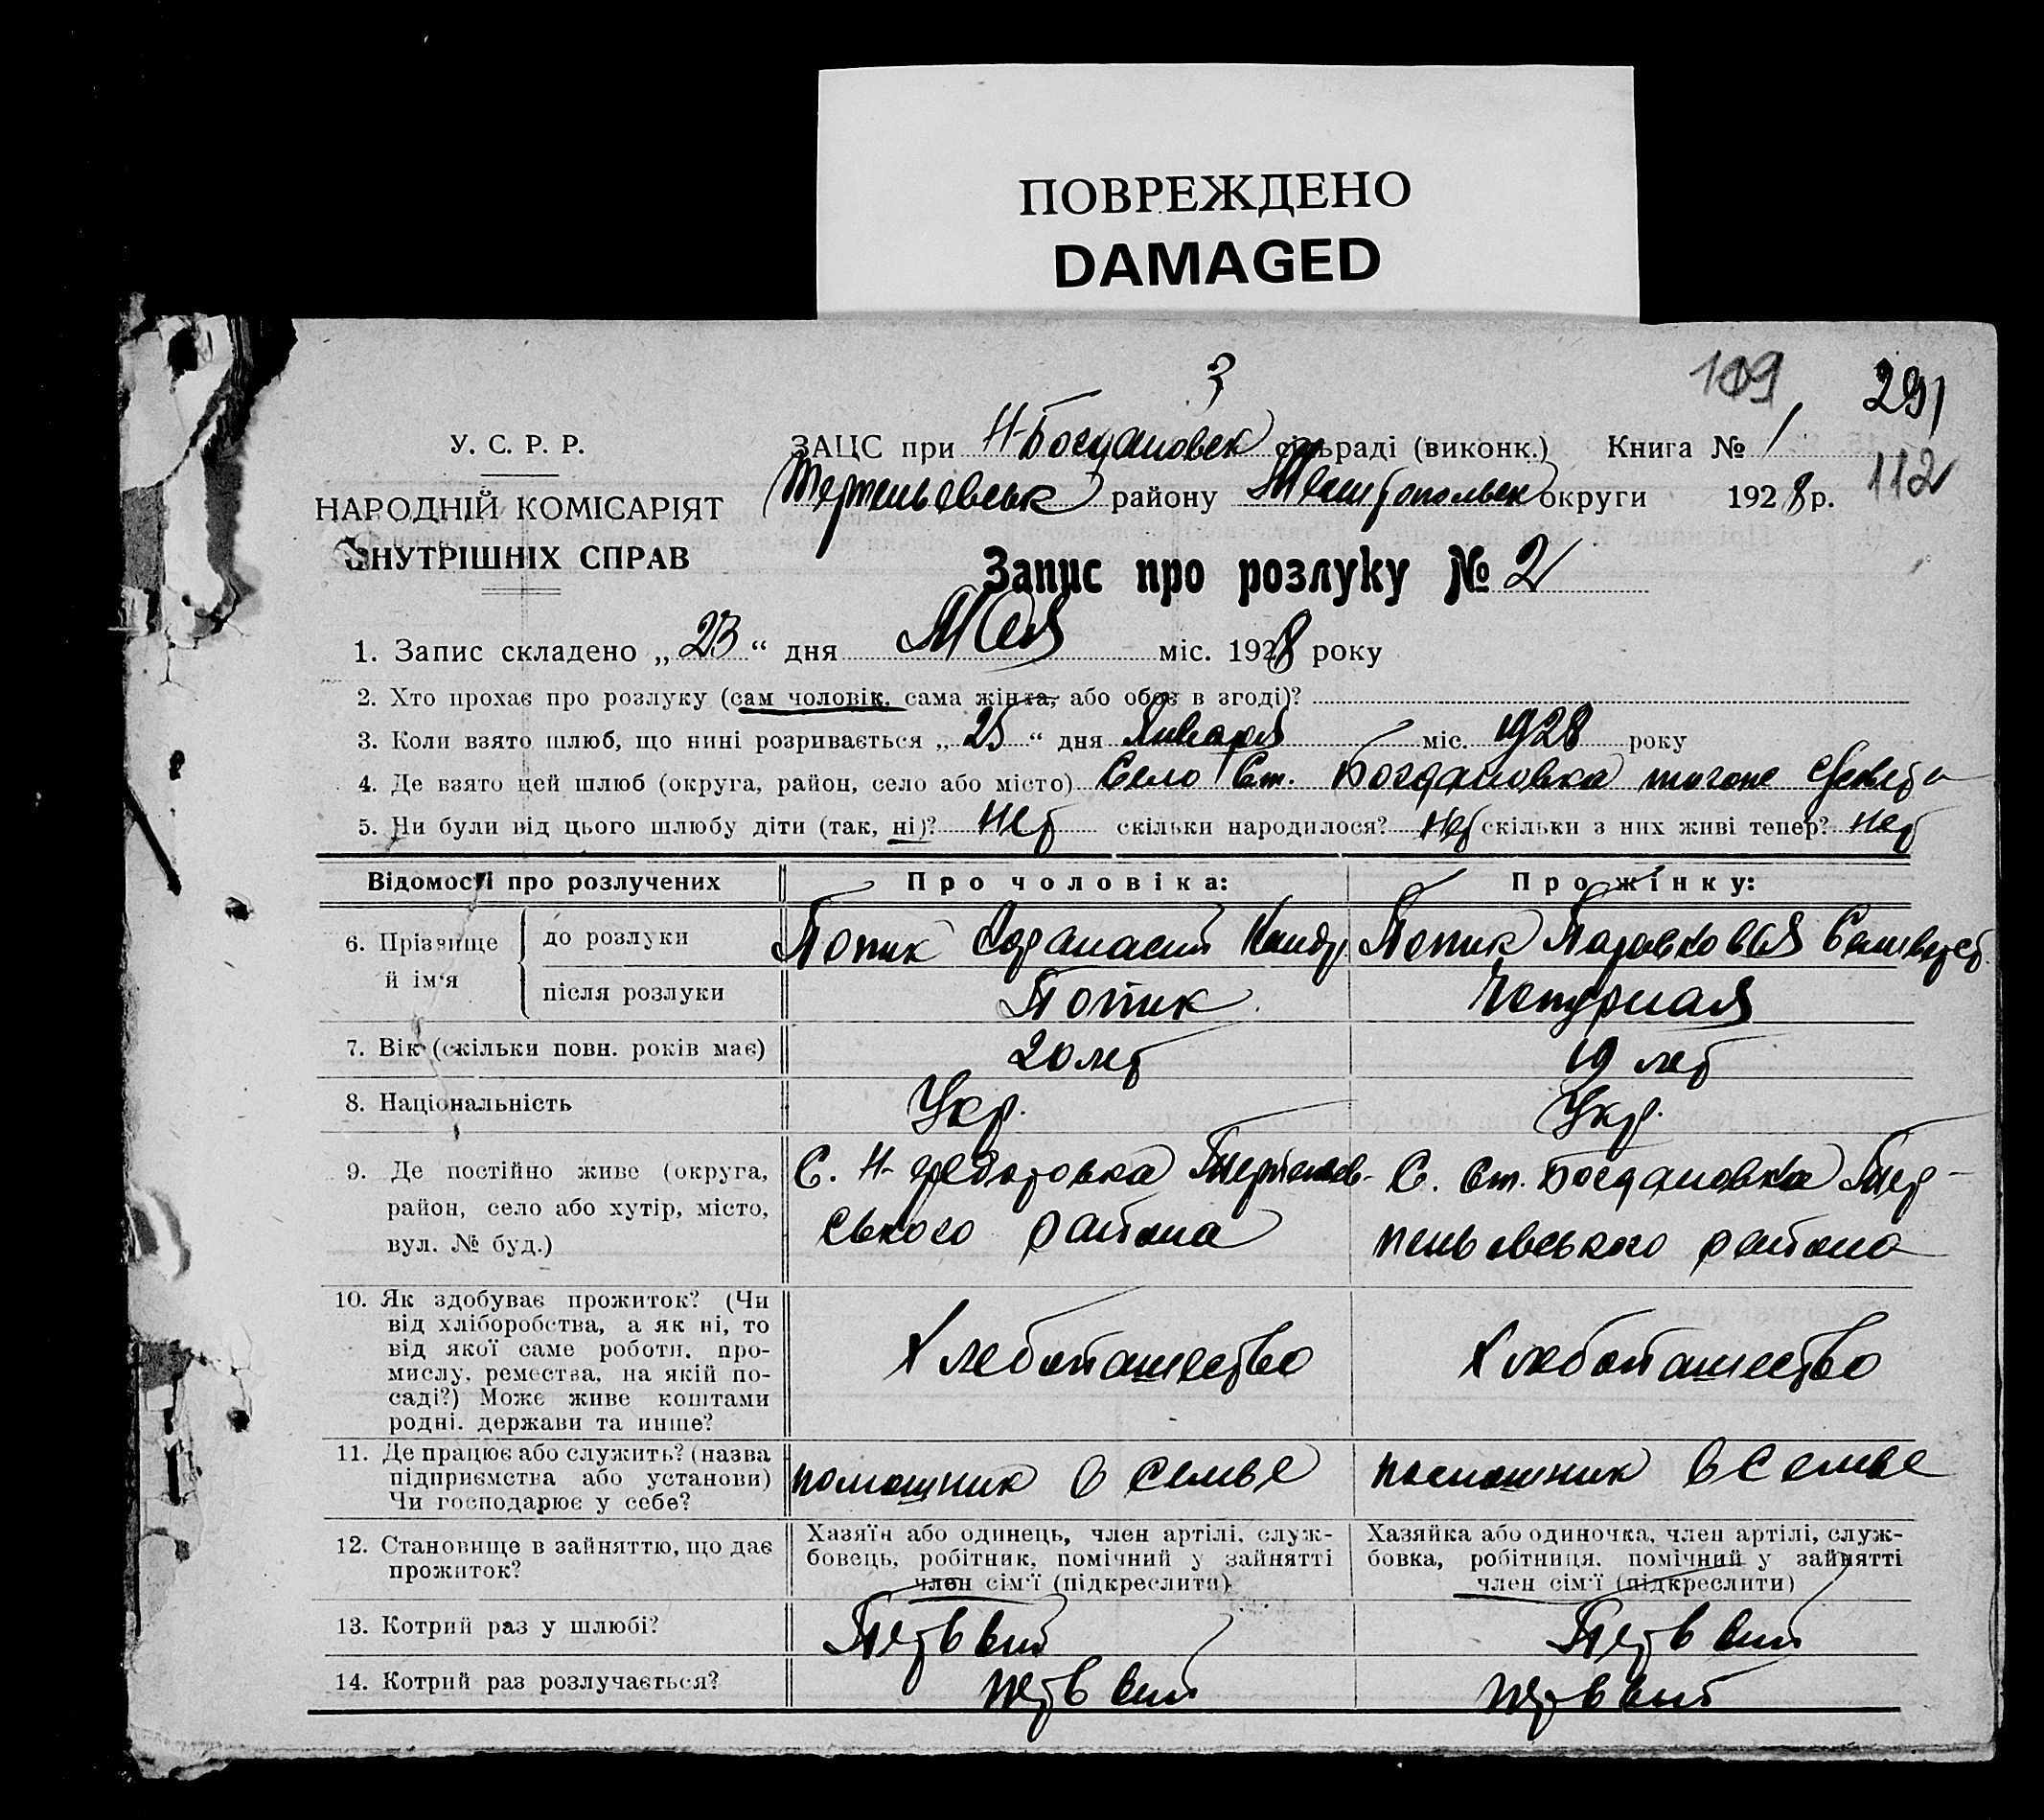 ПОВРЕЖДЕНО
DAMAGED
3
109
291
112
У. С. Р. Р.
НАРОДНІЙ КОМІСАРІЯТ
ВНУТРІШНІХ СПРАВ
ЗАЦС при Н-Богдановск сільраді (виконк.) Книга № 1
району округи 1928 р.
Запис про розлуку № 2
1. Запис складено „23“ дня Мая міс. 1928 року
2. Хто прохає про розлуку (сам чоловік, сама жінка, або обоє в згоді)?
3. Коли взято шлюб, що нині розривається „25“ дня Января міс. 1928 року
4. Де взято цей шлюб (округа, район, село або місто) Село Ст. Богдановка
5. Чи були від цього шлюбу діти (так, ні)? Нет скільки народилося? Нет скільки з них живі тепер? Нет
Відомості про розлучених Про чоловіка: Про жінку:
6. Прізвище й ім'я
до розлуки Попик Попик
після розлуки Попик Чепурная
7. Вік (скільки повн. років має) 20 лет 19 лет
8. Національність Укр. Укр.
9. Де постійно живе (округа, район, село або хутір, місто, вул. № буд.)
С. Н-Федоровка Терпеньев-
ського района
С. Ст. Богдановка Тер-
пеньевського района
10. Як здобуває прожиток? (Чи
від хліборобства, а як ні, то
від якої саме роботи, про-
мислу, ремества, на якій по-
саді?) Може живе коштами
родні, держави та инше?
Хлебопашество Хлебопашество
11. Де працює або служить? (назва
підприємства або установи)
Чи господарює у себе?
помошник в семье помошник в семье
12. Становище в зайняттю, що дає
прожиток?
Хазяїн або одинець, член артілі, служ-
бовець, робітник, помічний у зайнятті
член сім'ї (підкреслити)
Хазяйка або одиночка, член артілі, служ-
бовка, робітниця, помічний у зайнятті
член сім'ї (підкреслити)
13. Котрий раз у шлюбі? Первий Первий
14. Котрий раз розлучається? первий первий